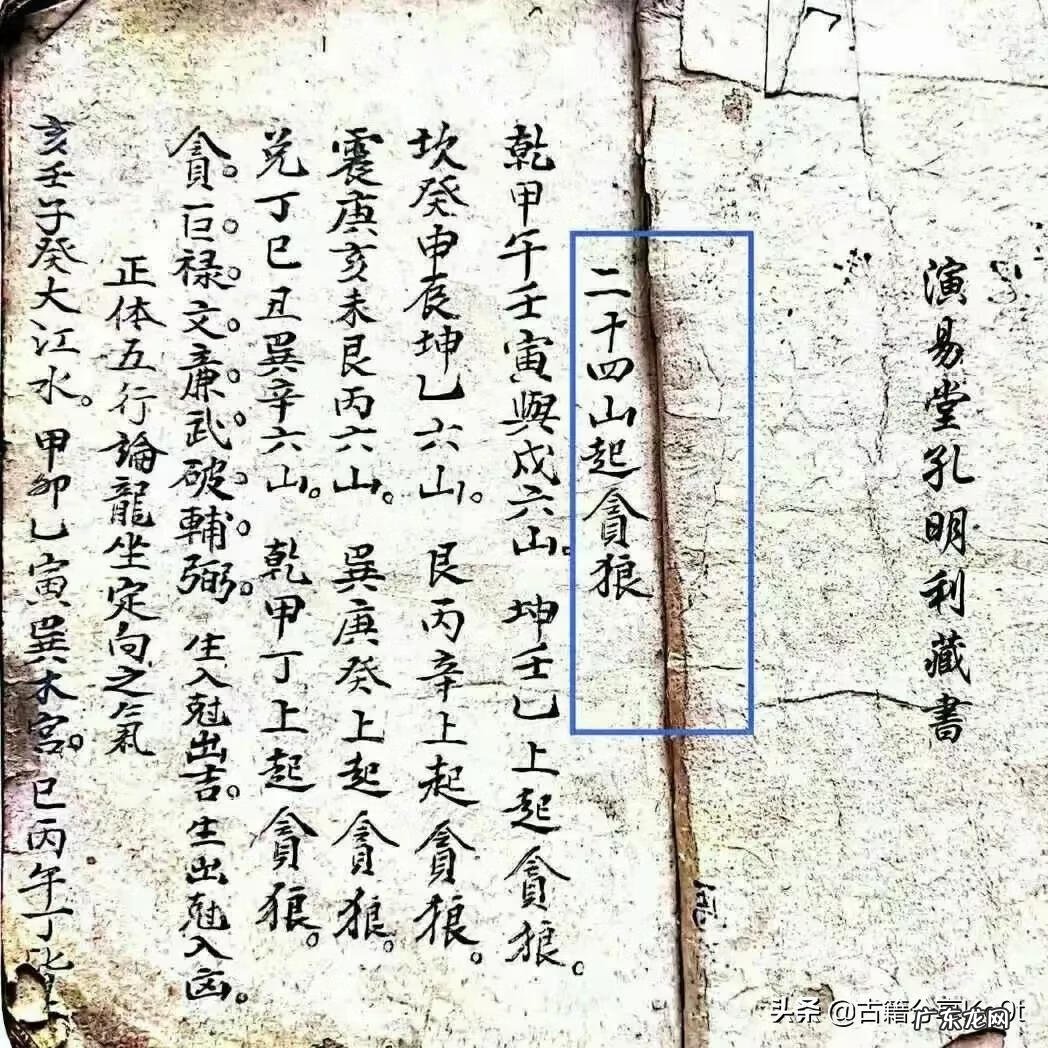 演易堂孔明利藏書
二十四山起貪狼
乾甲午壬寅與戍六山。坤壬乙上起貪狼。
坎癸申辰坤乙六山。艮丙辛上起貪狼。
震庚亥未艮丙六山。巽庚癸上起貪狼。
兌丁巳丑巽辛六山。乾甲丁上起貪狼。
貪。巨。禄。文。亷。武。破。輔。弼。生入尅出吉。生出尅入凶。
正体五行論龍坐定向之氣
亥壬子癸大江水。甲卯乙寅巽木宫。巳丙午丁
头条 @古籍
广东龙网